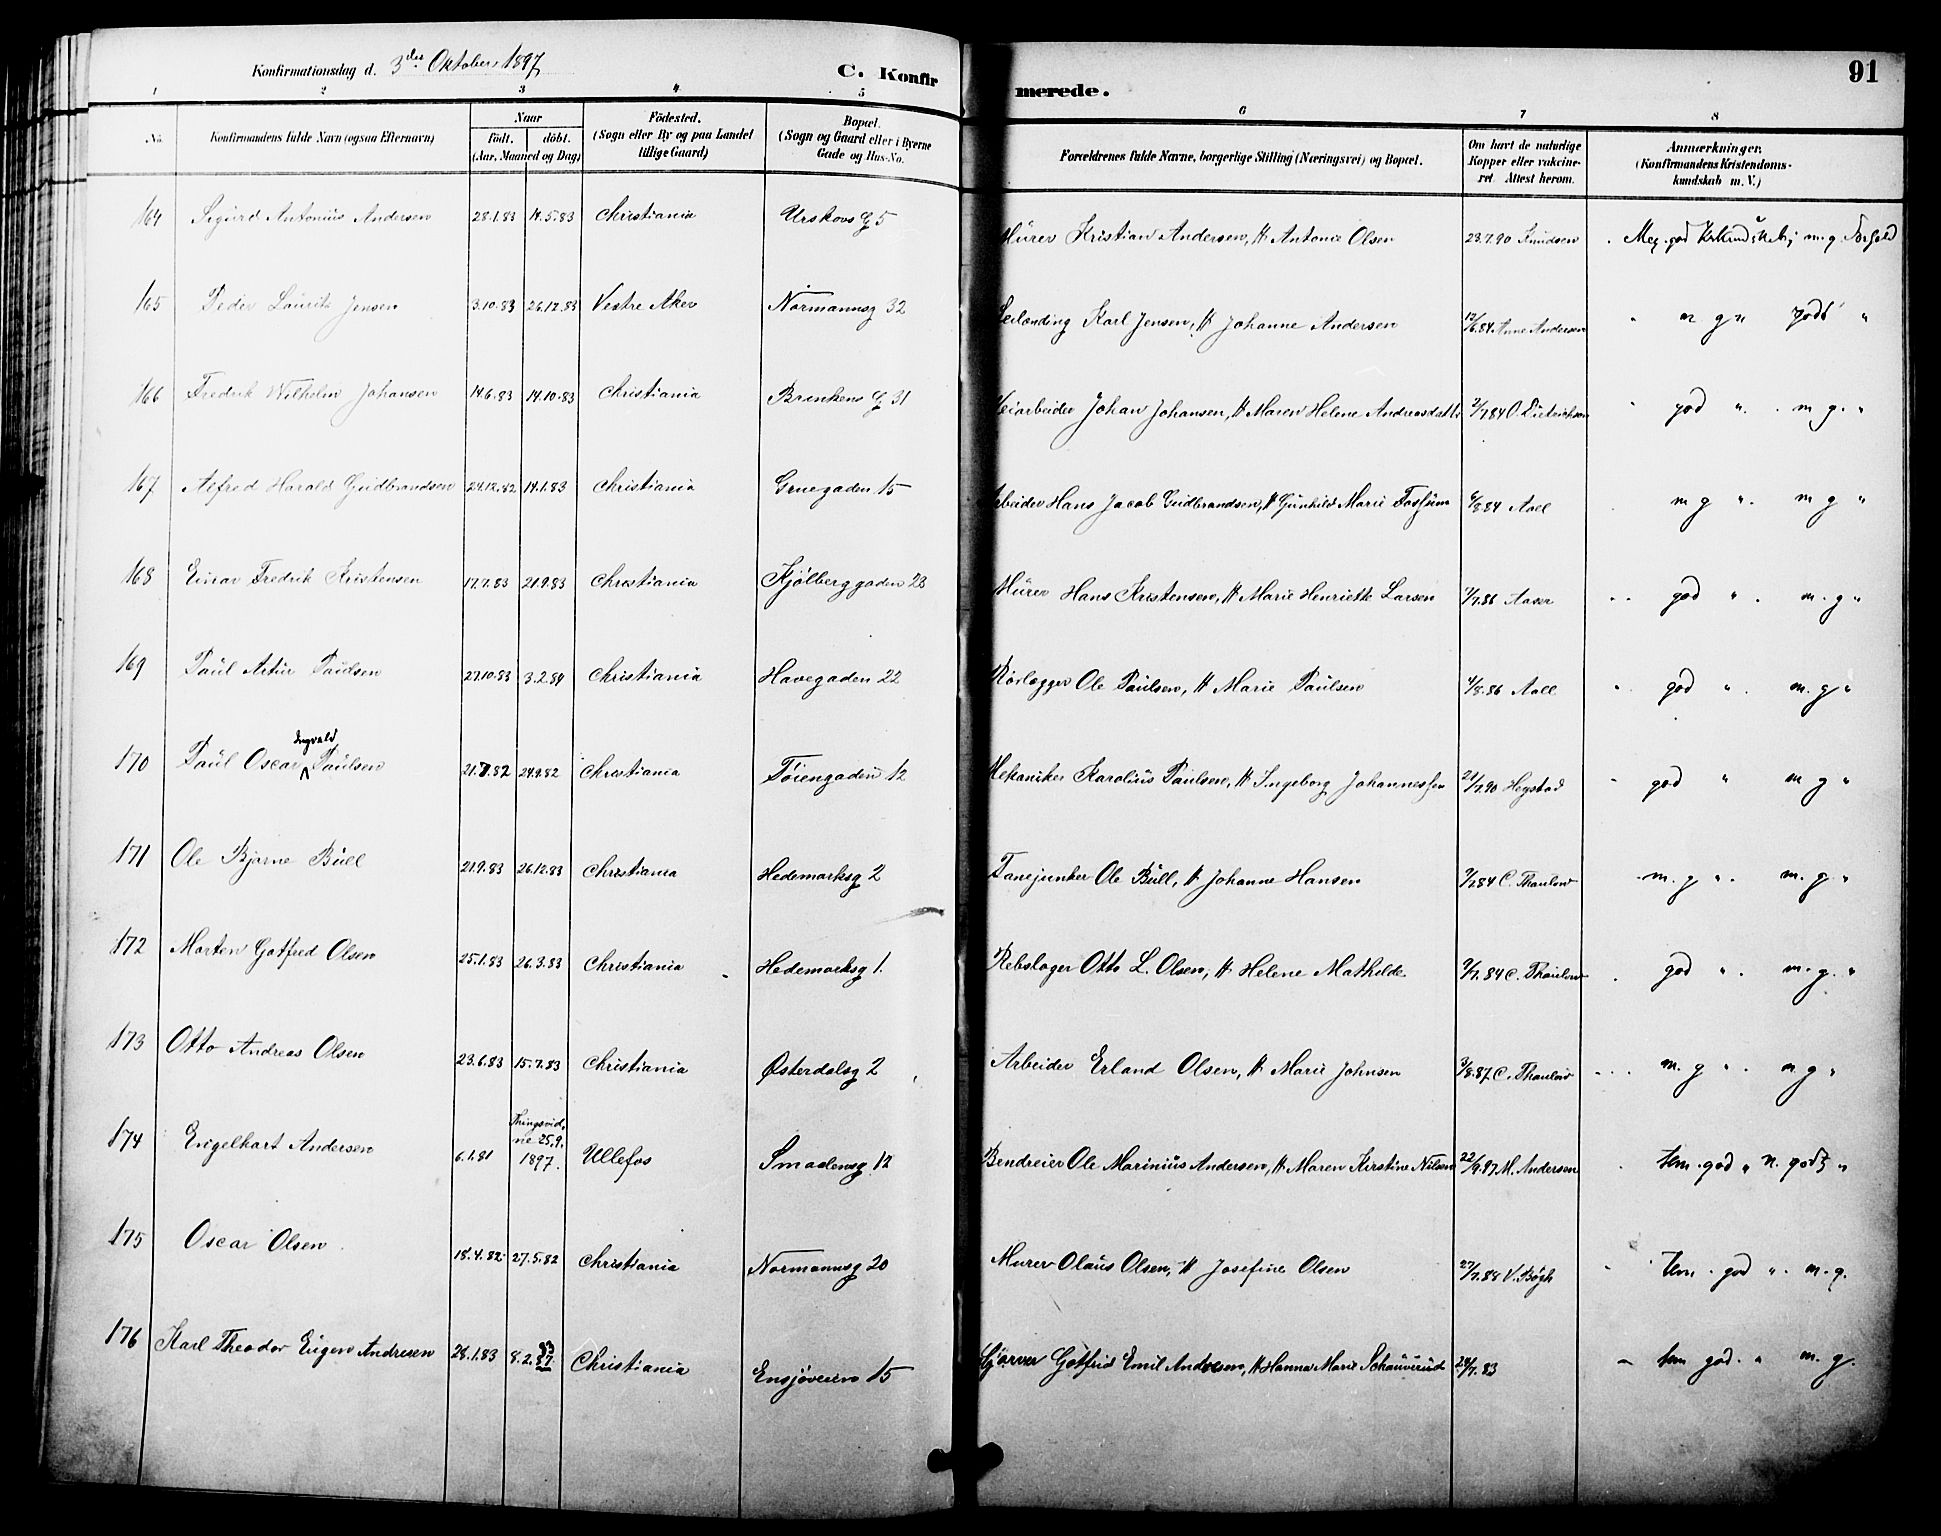 Konfirmationsdag d. 3die Oktober 1897
C. Konfirmerede.
91
1 2 3 4 5 6 7 8
No.
Konfirmandens fulde Navn (ogsaa Efternavn)
Naar
födt. döbt.
(Aar, Maaned og Dag)
Födested.
(Sogn eller By og paa Landet
tillige Gaard)
Bopæl.
(Sogn og Gaard eller i Byerne
Gade og Hus-No.
Forældrenes fulde Navne, borgerlige Stilling (Næringsvei) og Bopæl.
Om havt de naturlige
Kopper eller vakcine-
ret. Attest herom.
Anmærkninger.
(Konfirmandens Kristendoms-
kundskab m. V.)
164 Sigurd Antonius Andersen 28.1.83 14.5.83 Christiania Urskovs G 5 Murer Kristian Andersen, H Antonie Olsen 23.7.90 Knudsen Meg. god Krkundskab; m. g Forhold
165 Peder Lauritz Jensen 3.10.83 26.12.83 Vestre Aker Normannsg 32 Karl Jensen, H Johanne Andersen 12/6.84 Anne Andersen " m g " godt "
166 Fredrik Wilhelm Johansen 14.6.83 14.10.83 Christiania Brinkens G 31 Veiarbeider Johan Johansen, H Maren Helene Andreasdatter 2/7.84 O. Dietrichson " god " m g. "
167 Alfred Harald Gudbrandsen 24.12.82 14.1.83 Christiania Gruegaden 15 Arbeider Hans Jacob Gudbrandsen, H Gunhild Marie Fossum 6/8.84 Aall m g " m g "
168 Einar Fredrik Kristensen 17.7.83 21.9.83 Christiania Kjölberggaden 23 Murer Hans Kristensen, H Marie Henriette Larsen 7/7.86 Aaser god " m. g "
169 Paul Artur Paulsen 27.10.83 3.2.84 Christiania Havegaden 22 Rörlægger Ole Paulsen, H Marie Paulsen 4/8.86 Aall god " m. g "
170 Paul Oscar Ingvald Paulsen 21.7.82 24.9.82 Christiania Töiengaden 12 Mekaniker Karolius Paulsen, H Ingeborg Johannessen 21/7.90 Hegstad god " m g "
171 Ole Bjarne Bull 21.9.83 26.12.83 Christiania Hedemarksg 2 Fanejunker Ole Bull, H Johanne Hansen 9/7.84 C. Thaulow m. g " m. g. "
172 Morten Gotfred Olsen 25.1.83 26.3.83 Christiania Hedemarksg 1. Rebslager Otto L. Olsen, H Helene Mathilde 9/7.84 C. Thaulow god " m. g. "
173 Otto Andreas Olsen 23.6.83 15.7.83 Christiania Østerdalsg 2 Arbeider Erland Olsen, H Marie Johnsen 3/8.87 C. Thaulow m. g " m g "
174 Engelhart Andersen 6.1.81 Thingsvid,
ne 25.9.
1897. Ullefos Smaalensg 12 Bendreier Ole Marinius Andersen, H Maren Kirstine Nilsen 22/9.87 M. Andersen tem. god " n. godt "
175 Oscar Olsen 18.4.82 27.5.82 Christiania Normannsg 20 Murer Olaus Olsen, H Josefine Olsen 27/7.88 V. Bögh tem. god " m. g.
176 Karl Theodor Eugen Andresen 28.1.83 8.2.87 83 Christiania Ensjöveien 15 Gjørver Gotfrid Emil Andresen, H Hanna Marie Schauverud 24/7.83 tem god. " m. g.